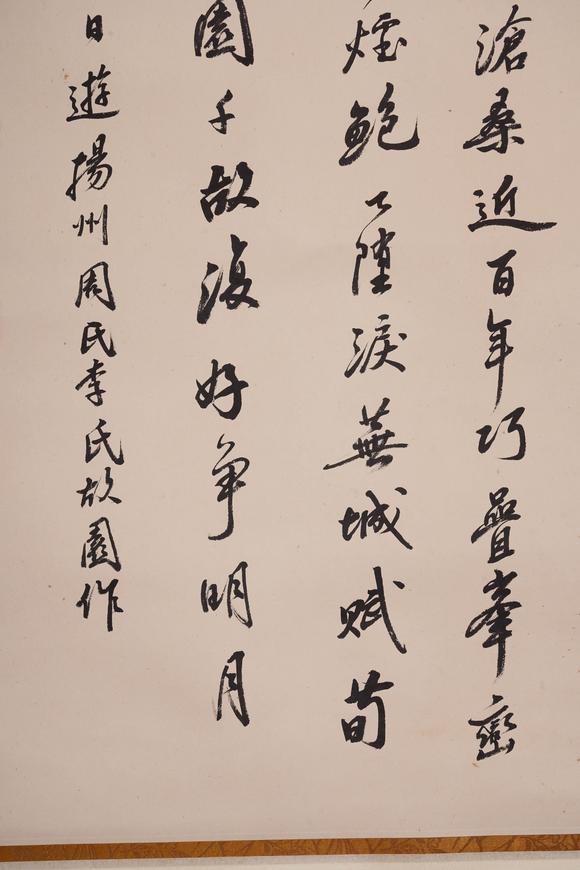 滄桑近百年巧疊峯巒
煙鮑墮淚蕪城賦荀
園故復好争明月
日遊揚州周氏李氏故園作